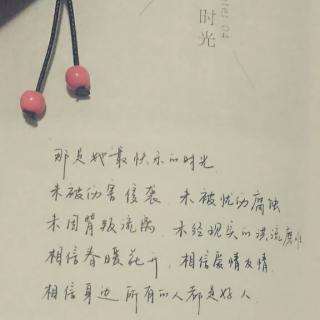 ter 04
时光
那是她最快乐的时光
未被伤害侵袭 未被忧伤腐蚀
未因背叛流离 未经现实的洪流磨
相信春暖花开，相信爱情友情
相信身边所有的人都是好人